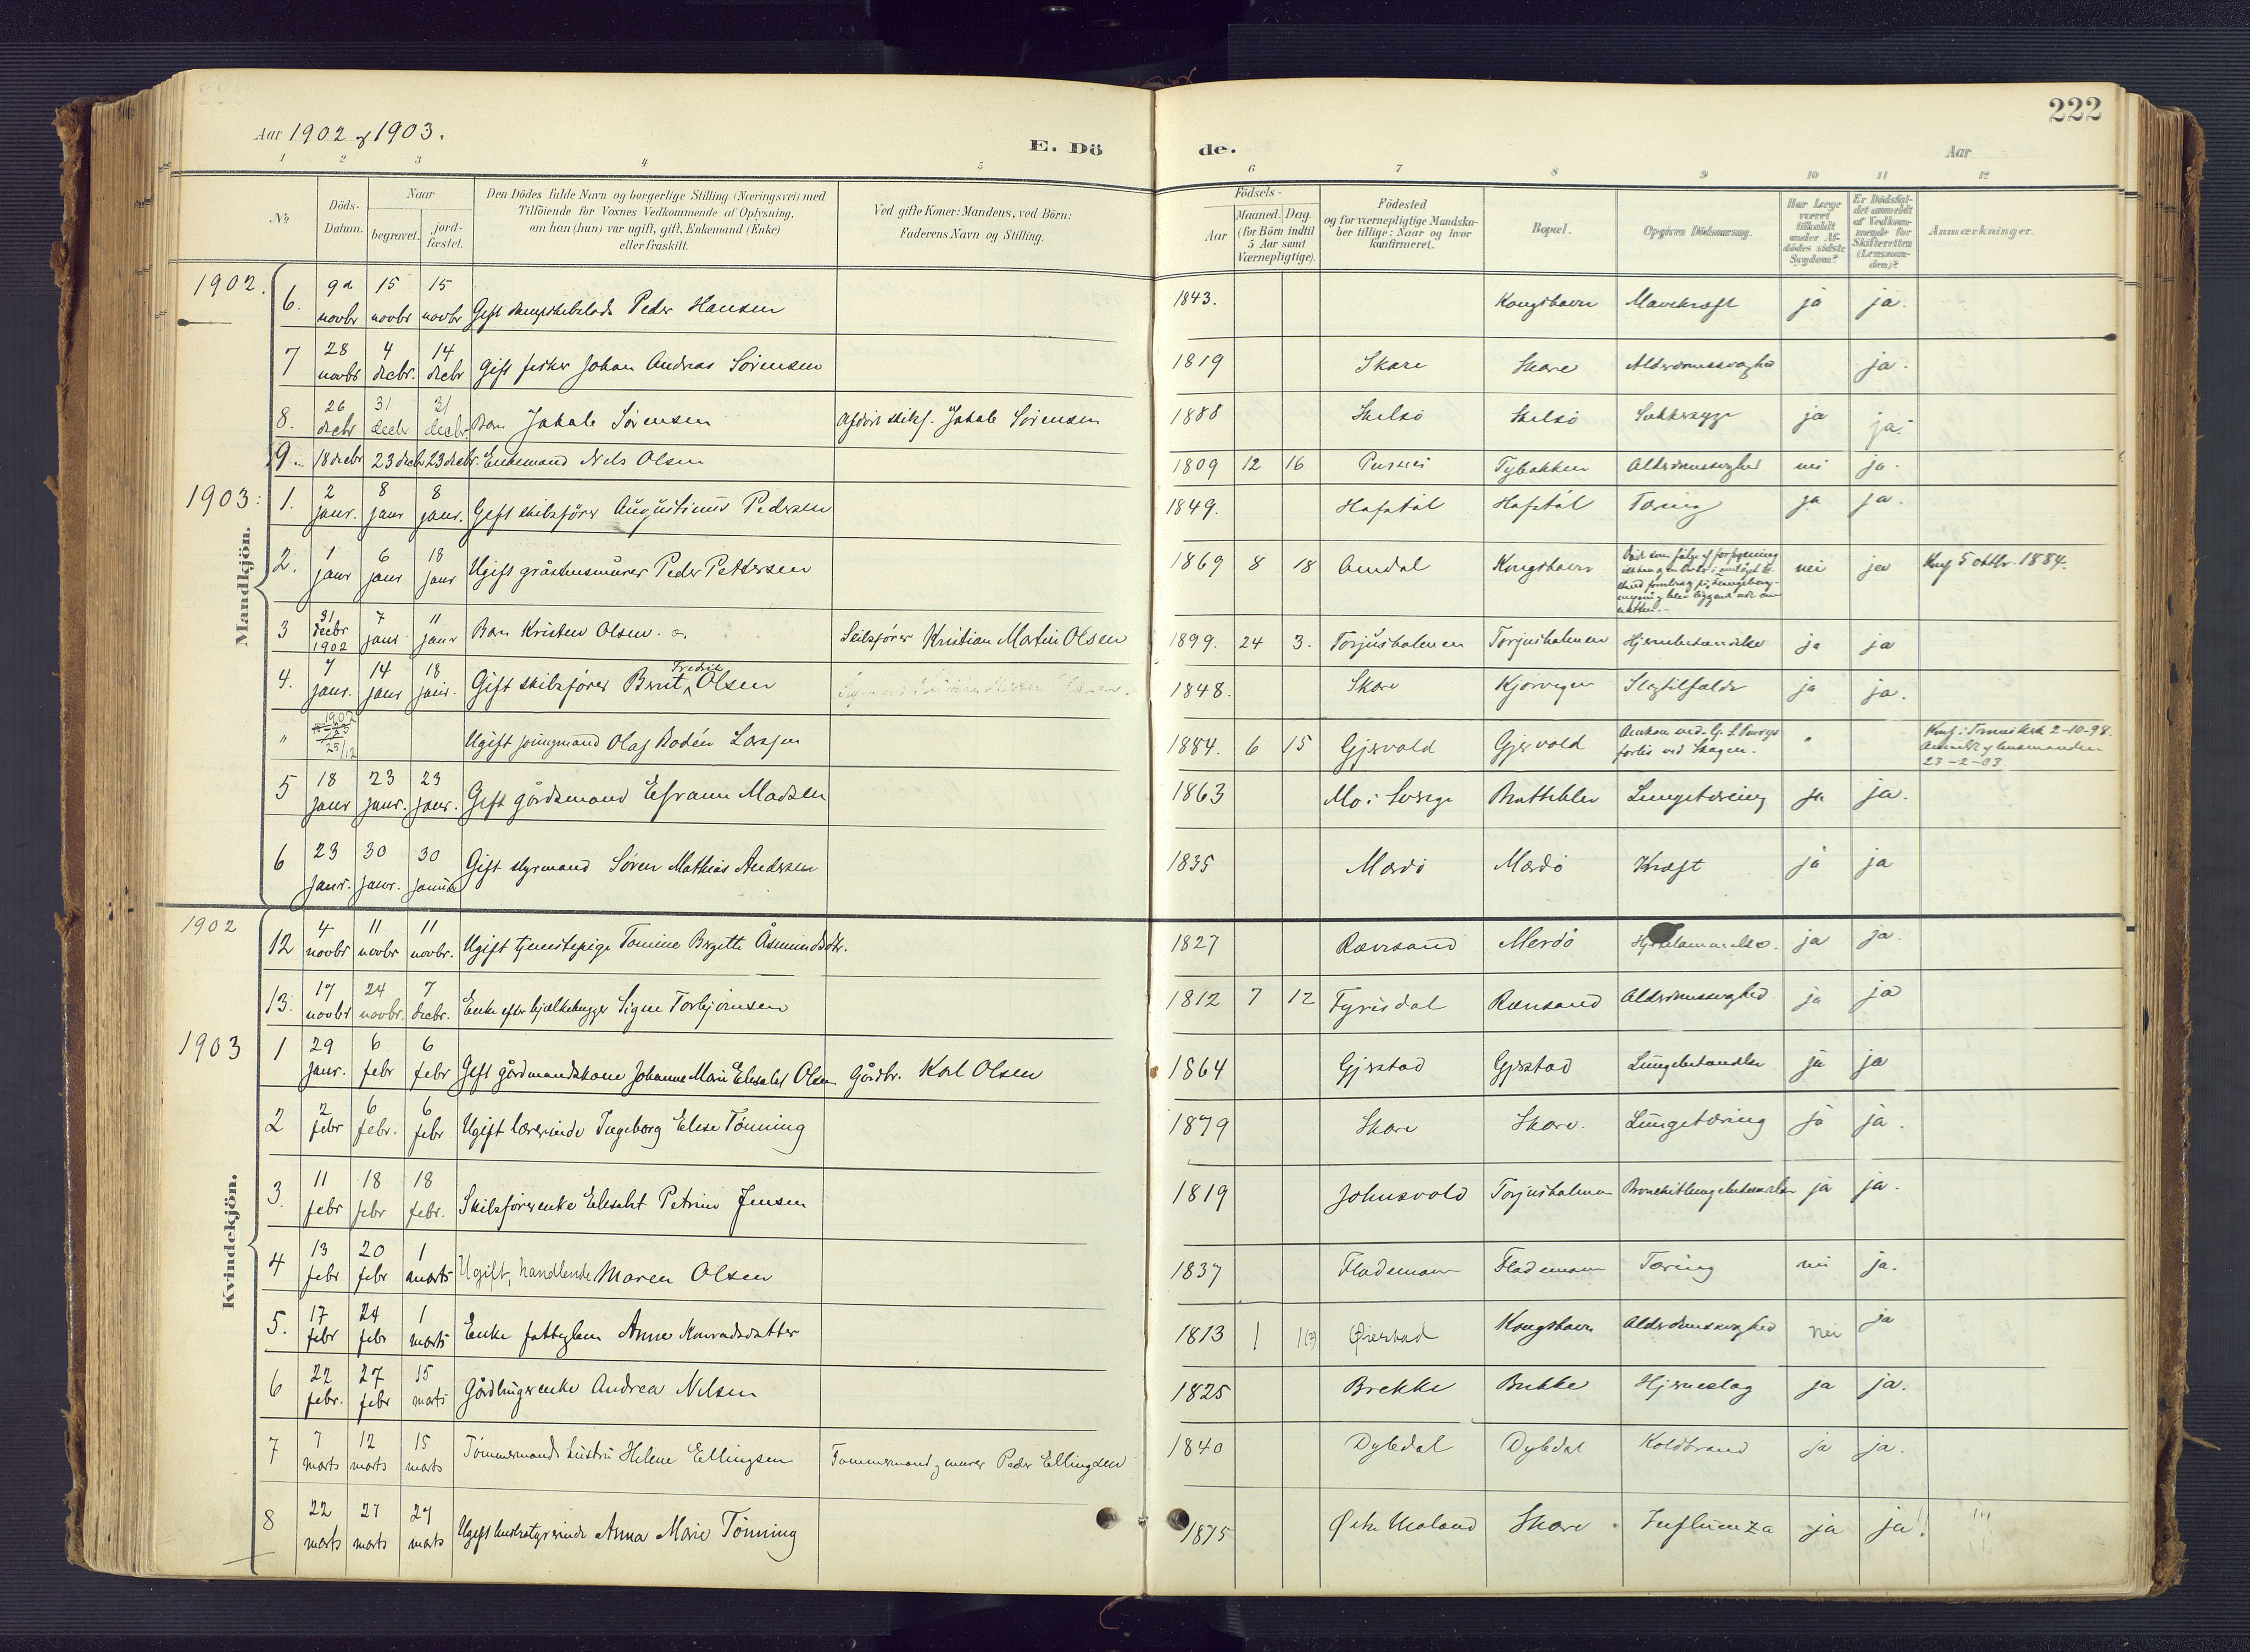 222
Aar 1902 & 1903.
E. Dö
de.
Aar
1 2 3 4 5 6 7 8 9 10 11 12
No
Döds-Datum.
Naar
begravet.
jord-fæstet.
Den Dödes fulde Navn og borgerlige Stilling (Næringsvei) med
Tilföiende for Voxnes Vedkommende af Oplysning,
om han (hun) var ugift, gift, Enkemand (Enke)
eller fraskilt.
Ved gifte Koner: Mandens, ved Börn:
Faderens Navn og Stilling.
Födsels-
Aar
Maaned. Dag.
(for Börn indtil
5 Aar samt
Værnepligtige).
Födested
og for værnepligtige Mandska-
ber tillige: Naar og hvor
konfirmeret.
Bopæl.
Opgiven Dödsaarsag.
Har Læge
været
tilkaldt
under Af-
dödes sidste
Sygdom?
Er Dödsfal-
det anmeldt
af Vedkom-
mende for
Skifteretten
(Lensman-
den)?
Anmærkninger.
Mandkjön.
1902.
6. 9d novbr 15 novbr 15 novbr Gift Peder Hansen 1843. Kongshavn Mavekræft ja ja.
7 28 novbr 4 decbr. 14 decbr Gift fisker Johan Andreas Sörensen 1819 Skare Skare Alderdomssvaghed ja.
8. 26 decbr 31 decbr 31 decbr. Barn Jakale Sörensen Afdöd skibsf. Jakale Sörensen 1888 Skilsö Skilsö Sukkersyge ja ja.
9. 18 decbr 23 decbr 23 decbr. Enkemand Nils Olsen 1809 12 16 Pusnes Tybakken Alderdomssvaghed nei ja.
1903:
1. 2 janr. 8 janr 8 janr. Gift skibsförer Augustinus Pedersen 1849. Hafstöl Hafstöl Tæring ja ja.
2. 1 janr 6 janr 18 janr Ugift gråstensmurer Peder Pettersen 1869 8 18 Amdal Kongshavn Död som fölge af nei ja Knf 5 oktbr. 1884.
3 31 decbr 1902 7 janr 11 janr Barn Kristen Olsen. Skibsförer Kristian Martin Olsen 1899. 24 3. Torjusholmen Torjusholmen Hjernebetændelse ja ja
4. 7 janr. 14 janr 18 janr. Gift skibsförer Bernt Fredrik Olsen 1848. Skare Kjörvigen Slagtilfælde ja ja.
" 1902 25/12 Ugift jungmand Olaf Bodén Larsen 1884. 6 15 Gjervold Gjervold Omkom ved forlis ved Skagen. " 2-10-98. 23-2-03
5 18 janr 23 janr. 23 janr. Gift gårdsmand Efraim Madsen 1863 Mo i Sverige Brattekleiv Lungetæring ja ja.
6 23 janr. 30 janr. 30 januar Gift styrmand Sören Mathias Andersen 1835 Mærdö Mærdö Kræft ja ja
Kvindekjön.
1902
12 4 novbr 11 novbr 11 novbr. Ugift tjenestepige Tomine Birgitte Åsmundsdtr. 1827 Rævesand Merdö ja ja.
13. 17 novbr 24 novbr. 7 decbr. Enke efter bjælkehugger Signe Torbjörnsen 1812 7 12 Fyrisdal Rævesand Alderdomssvaghed ja ja
1903
1 29 janr. 6 febr 6 febr Gift gårdmandskone Johanne Marie Elisabet Olsen Gårdbr. Karl Olsen 1864 Gjerstad Gjerstad Lungebetændelse ja ja
2 2 febr 6 febr. 6 febr Ugift lærerinde Ingeborg Elise Tönning 1879 Skare Skare. Lungetæring ja ja.
3. 11 febr 18 febr 18 febr. Skibsförerenke Elisabet Petrine Jensen 1819 Johnsvold Torjusholmen ja ja.
4 13 febr 20 febr 1 marts Ugift, handlende Maren Olsen 1837 Flademoen Flademoen Tæring nei ja.
5. 17 febr 24 febr 1 marts Enke fattiglem Anne Konradsdatter 1813 1 1(?) Öiestad Kongshavn Alderdomssvaghed nei ja
6 22 febr. 27 febr 15 marts Gårdbrugerenke Andrea Nilsen 1825 Brekke Brekke Hjerneslag ja ja.
7 7 marts 12 marts 15 marts Tömmermands hustru Helene Ellingsen Tömmermand og murer Peder Ellingsen 1840 Dybdal Dybdal Koldbrand ja ja.
8 22 marts 27 marts 29 marts Ugift husbestyrerinde Anna Marie Tönning 1875 Skare Influenza ja ja!